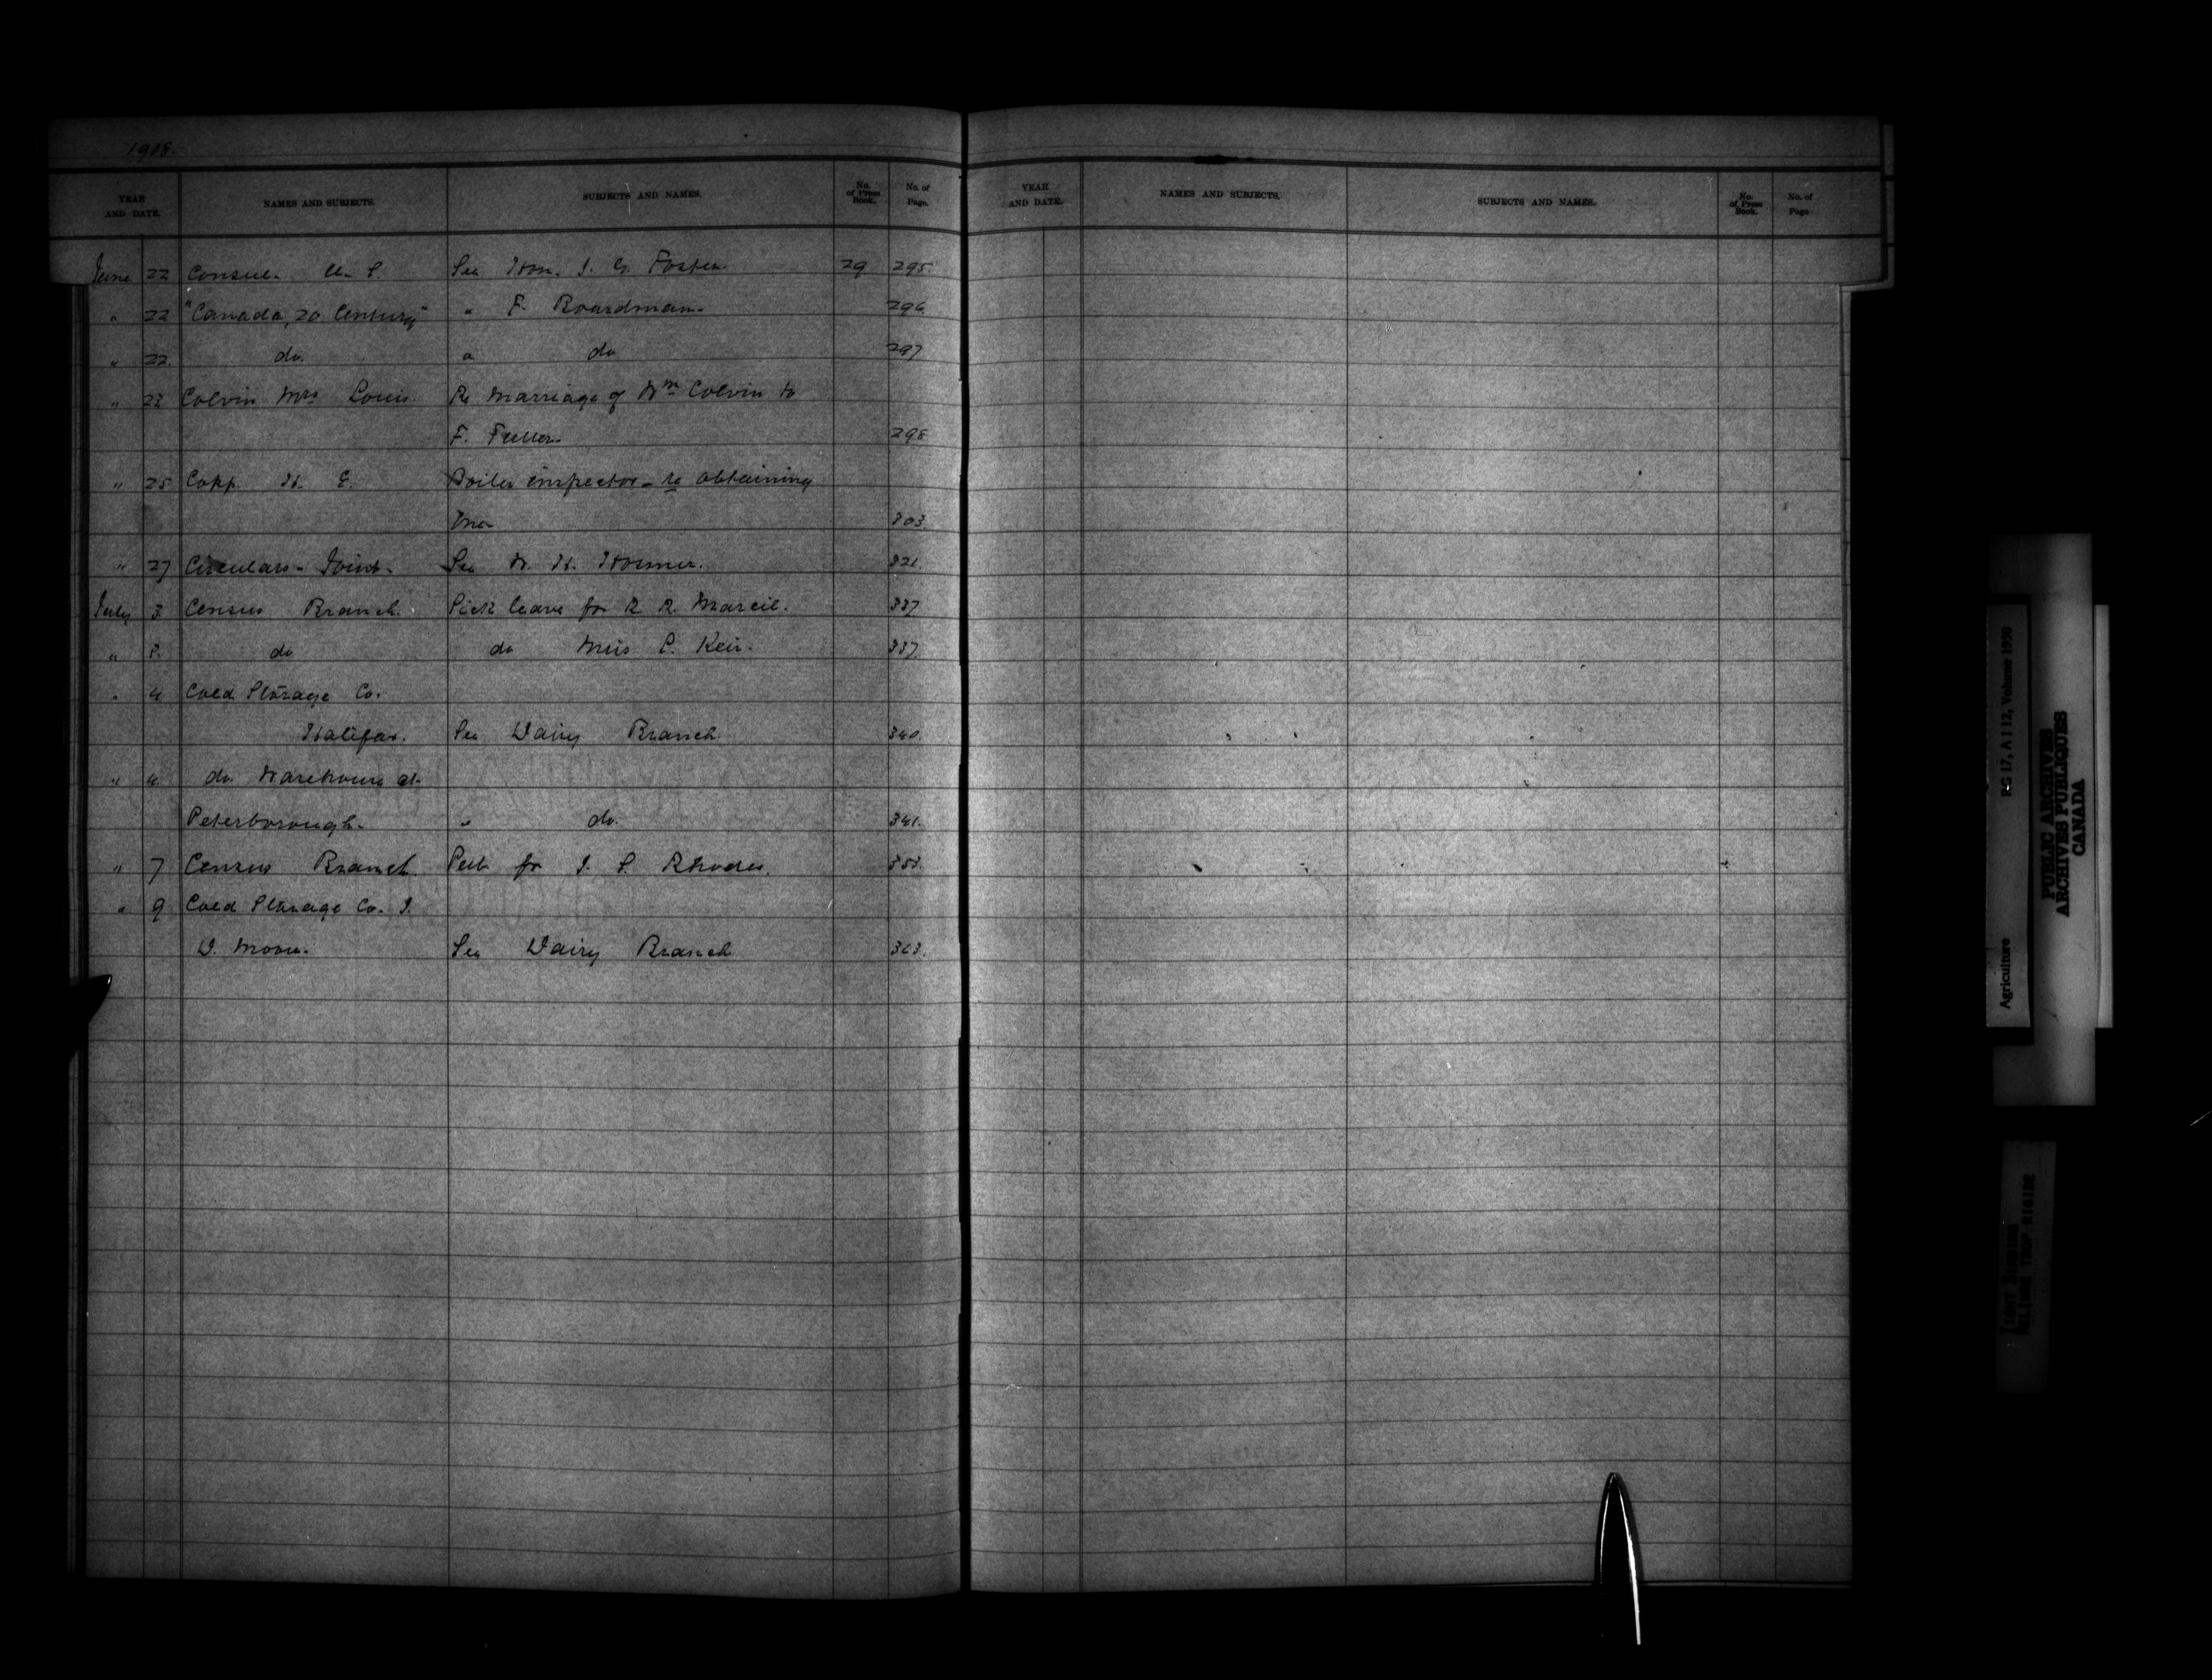 1908.
YEAR AND DATE. NAMES AND SUBJECTS. SUBJECTS AND NAMES. No. of Press Book. No. of Page.
June 22 Consul- U. S. See Hon. J. G. Foster. 29 295
" 22 "Canada, 20 Century" " F. Boardman. 296
" 22. do. " do 297
" 22 Colvin Mrs Louis. Re Marriage of Wm Colvin to
F. Fuller. 298
" 25 Copp. H. E. Boiler inspector - re obtaining
one 303.
" 27 Circulars - Joint. See W. H. 321.
July 3. Census Branch. Sick leave for R. R. Marcil. 337.
" 3. do do Miss S. Keir. 337.
" 4 Cold Storage Co.
Halifax. See Dairy Branch. 340.
" 4. do. Warehouse at
Peterborough. " do. 341.
" 7 Census Branch. for J. S. Rhodes. 353.
" 9 Cold Storage Co. J.
D. Moore. See Dairy Branch 363.
YEAR AND DATE. NAMES AND SUBJECTS. SUBJECTS AND NAMES. No. of Press Book. No. of Page
Agriculture RG 17, A I 12, Volume 1950
PUBLIC ARCHIVES
ARCHIVES PUBLIQUES
CANADA
TIGHT BINDING
RELIURE TROP RIGIDE